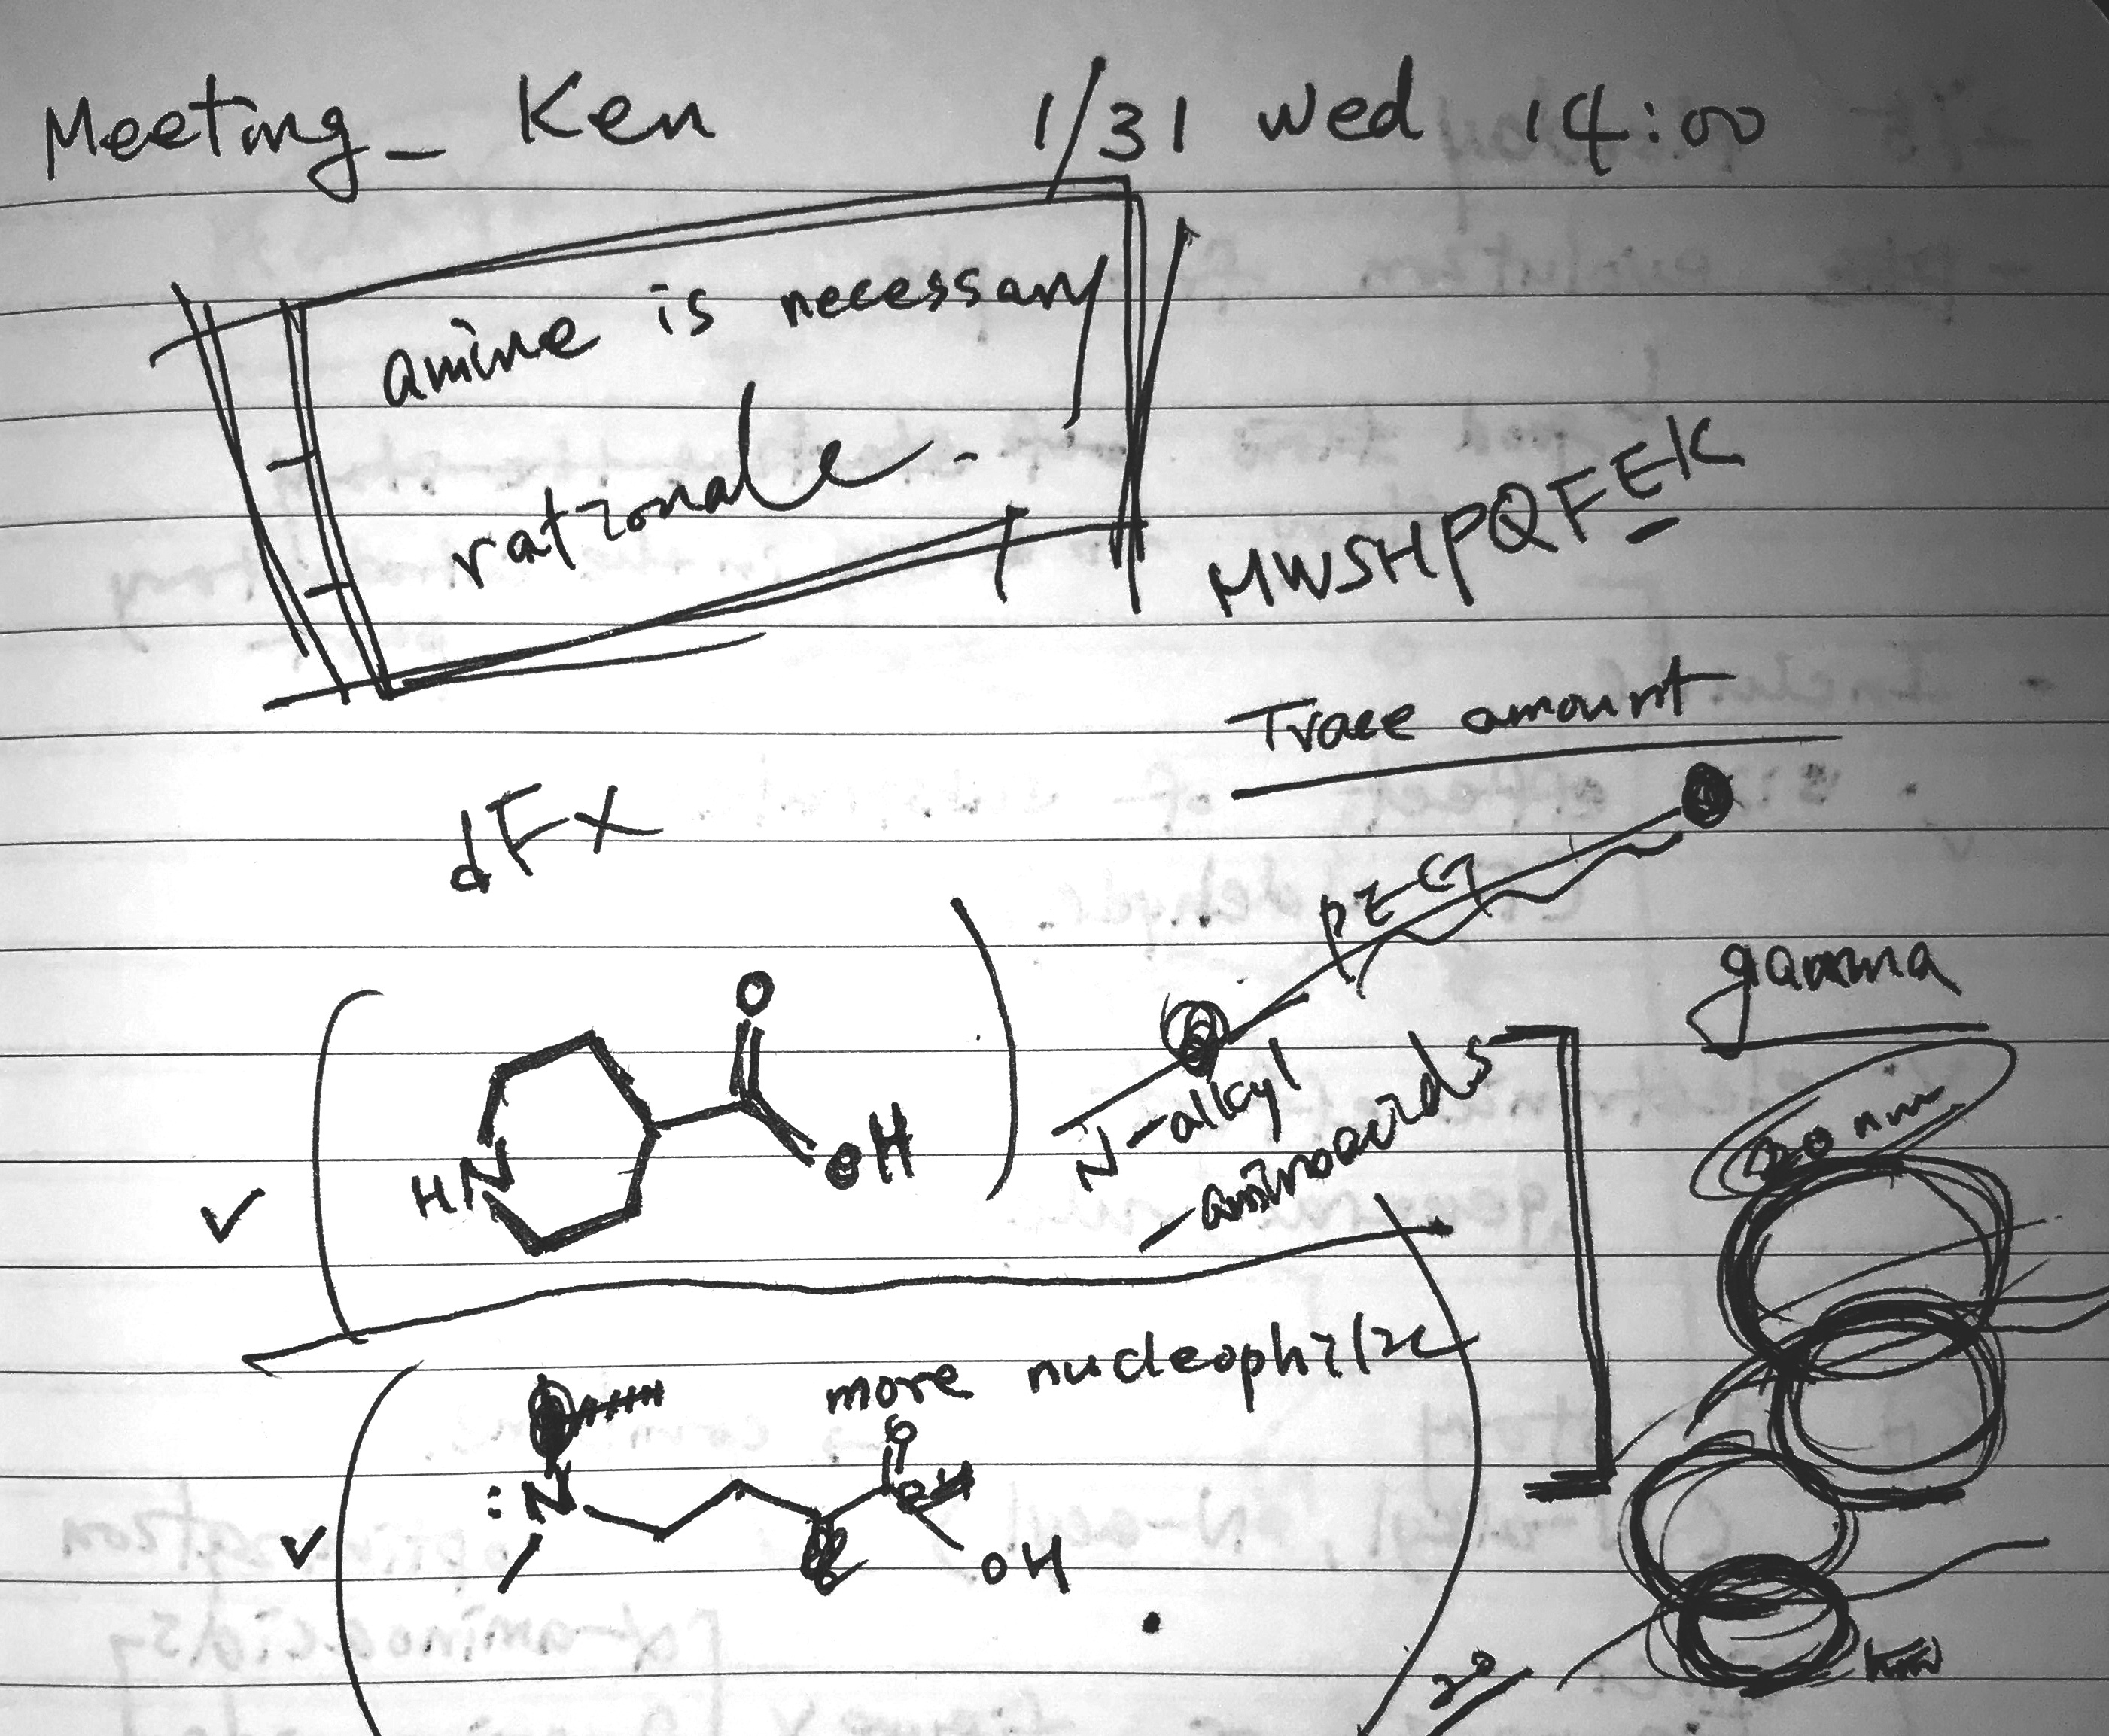 Meeting_ Ken 1/31 Wed 14:00
amine is necessary
rationale.
MWSHPQFEK
Trace amount
dFx
PEG
gamma
O
HN
OH
N-alkyl
-aminoacids
20 nm
more nucleophilic
O
:N
OH
20